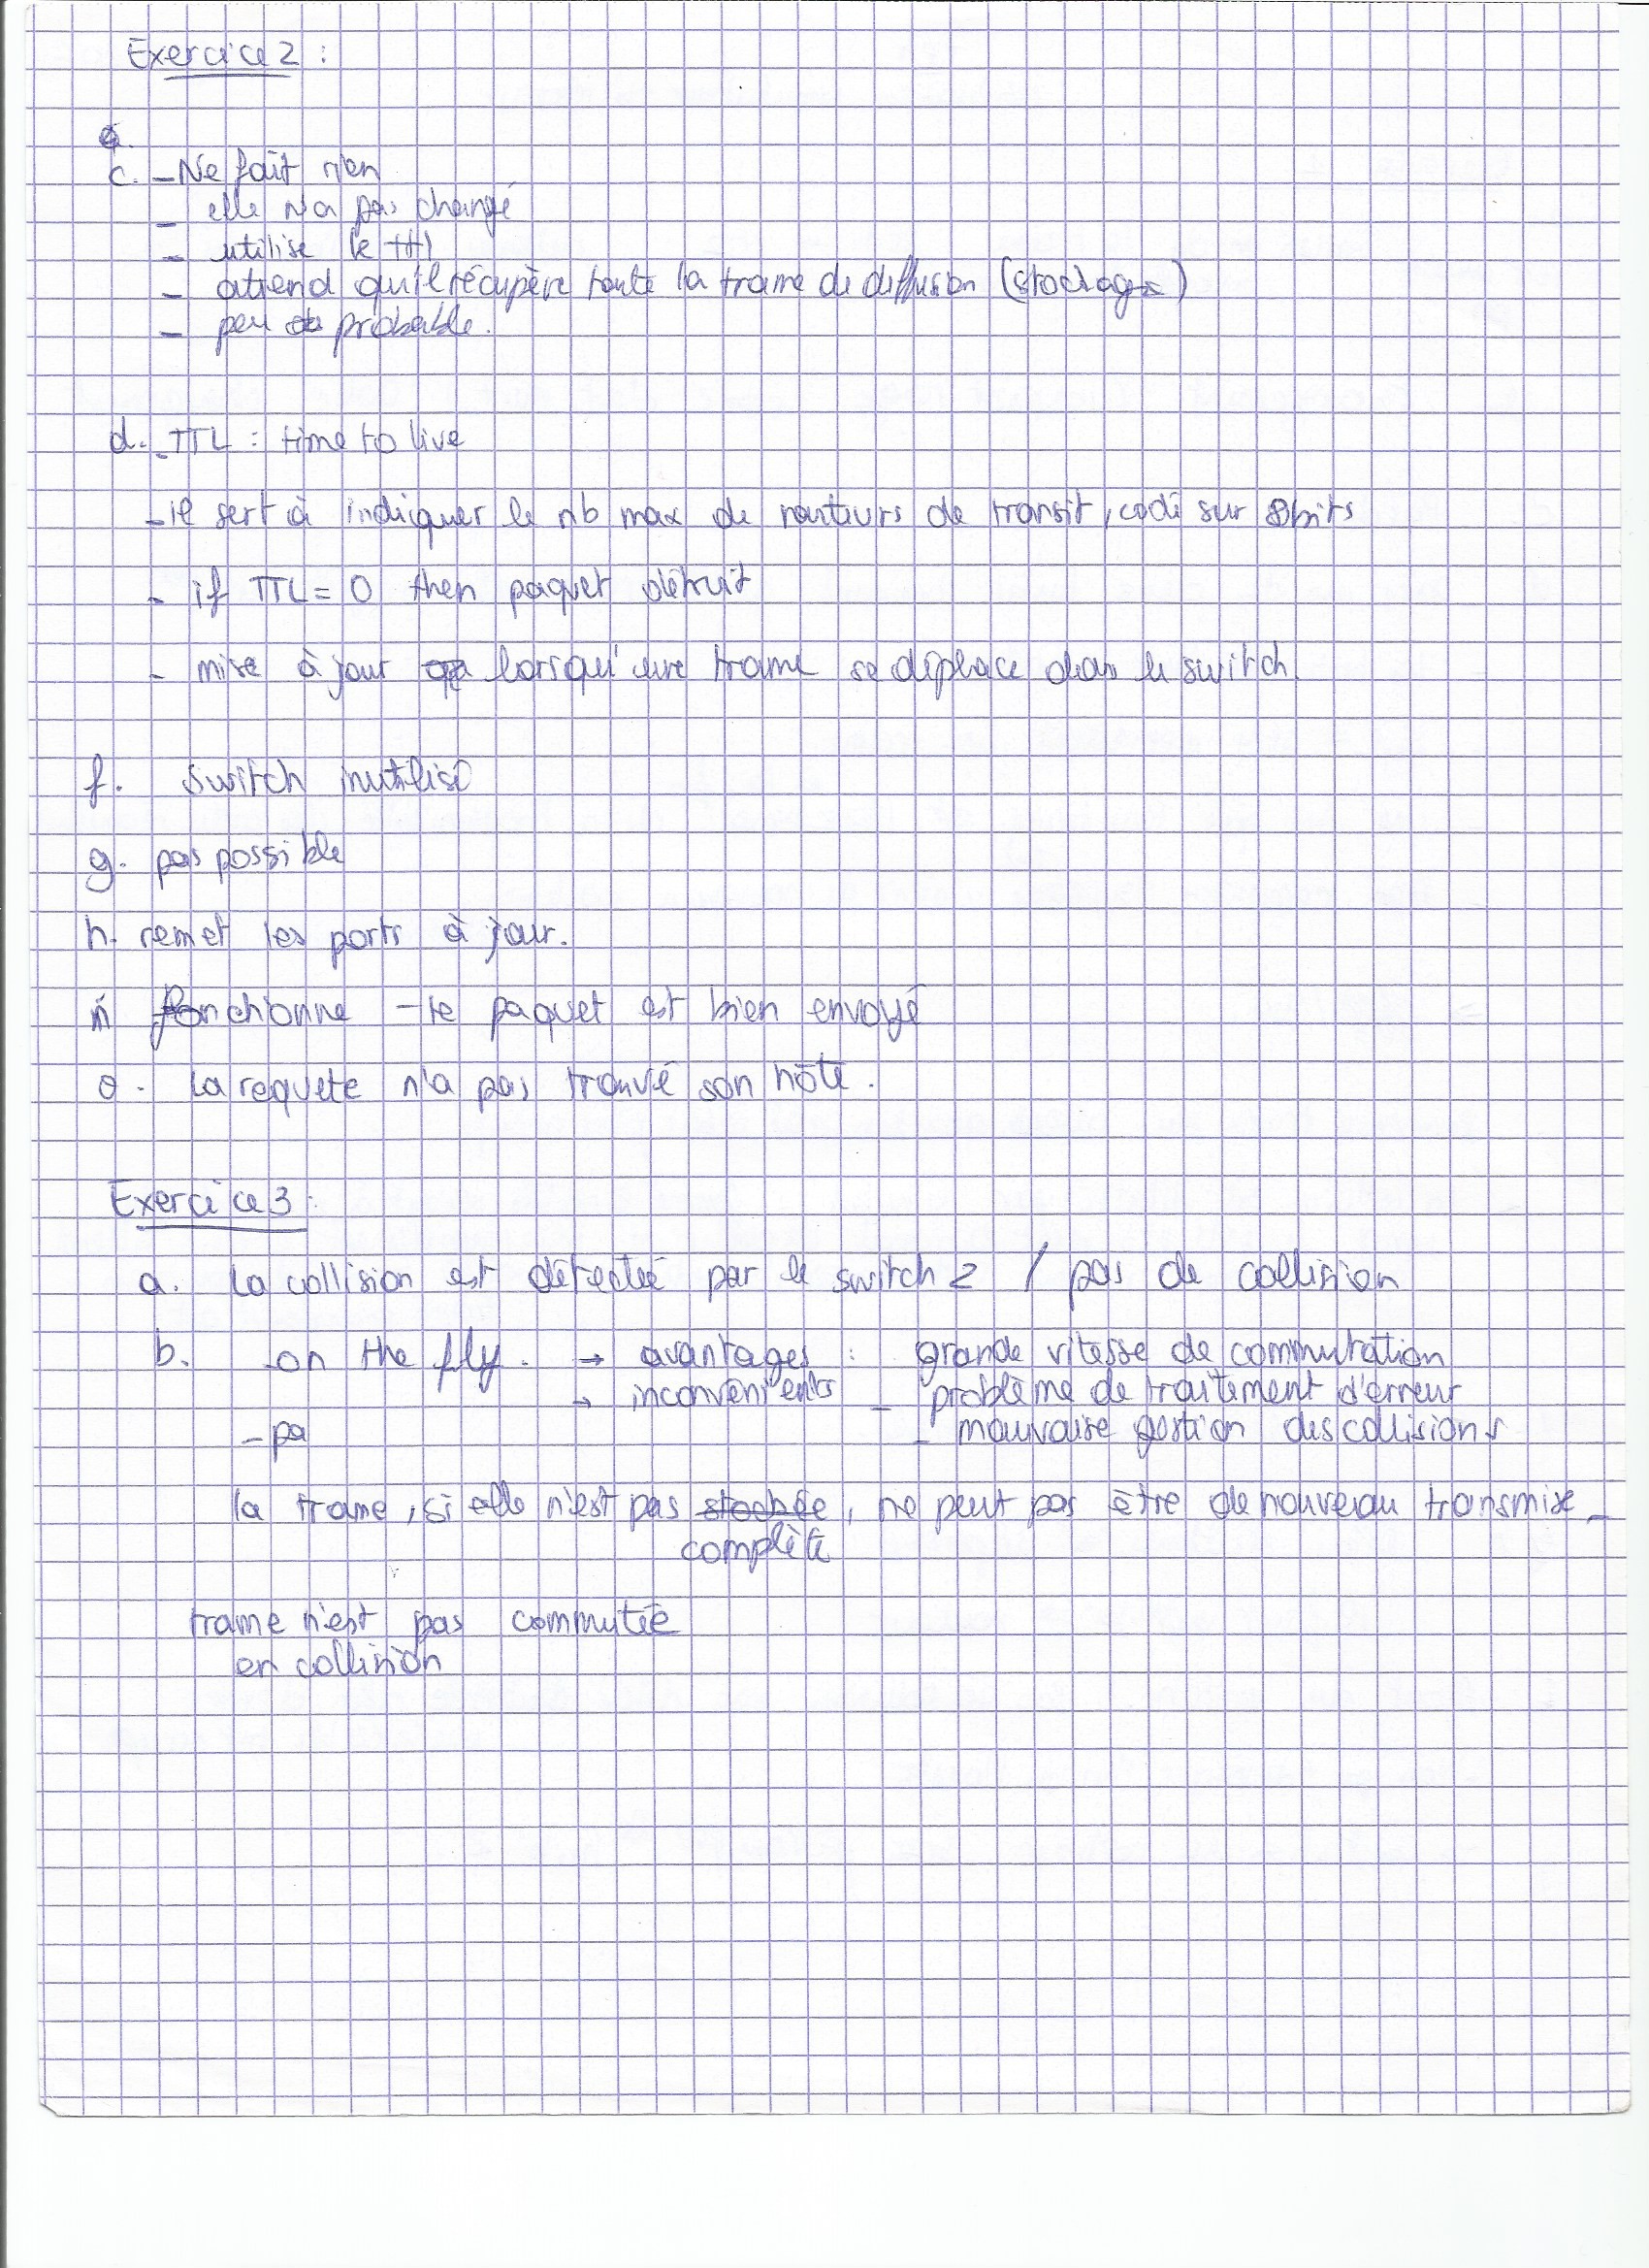 Exercice 2 :
c. - Ne fait rien
- elle n'a pas changé
- utilise le ttl
- attend qu'il récupère toute la trame de diffusion (stockage)
- peu probable.
d. TTL : time to live
- il sert à indiquer le nb max de routeurs de transit, codé sur 8bits
- if TTL = 0 then paquet détruit
- mise à jour lorsqu'une trame se déplace dans le switch.
f. switch inutilisé
g. pas possible
h. remet les ports à jour.
fonctionne - le paquet est bien envoyé
o. la requete n'a pas trouvé son hôte.
Exercice 3 :
a. la collision est détectée par le switch 2 / pas de collision
b. on the fly. → avantages : grande vitesse de commutation
→ inconvenients - problème de traitement d'erreur
- pa - mauvaise gestion des collisions
la trame, si elle n'est pas stockée, ne peut pas être de nouveau transmise -
complète
trame n'est pas commutée
en collision